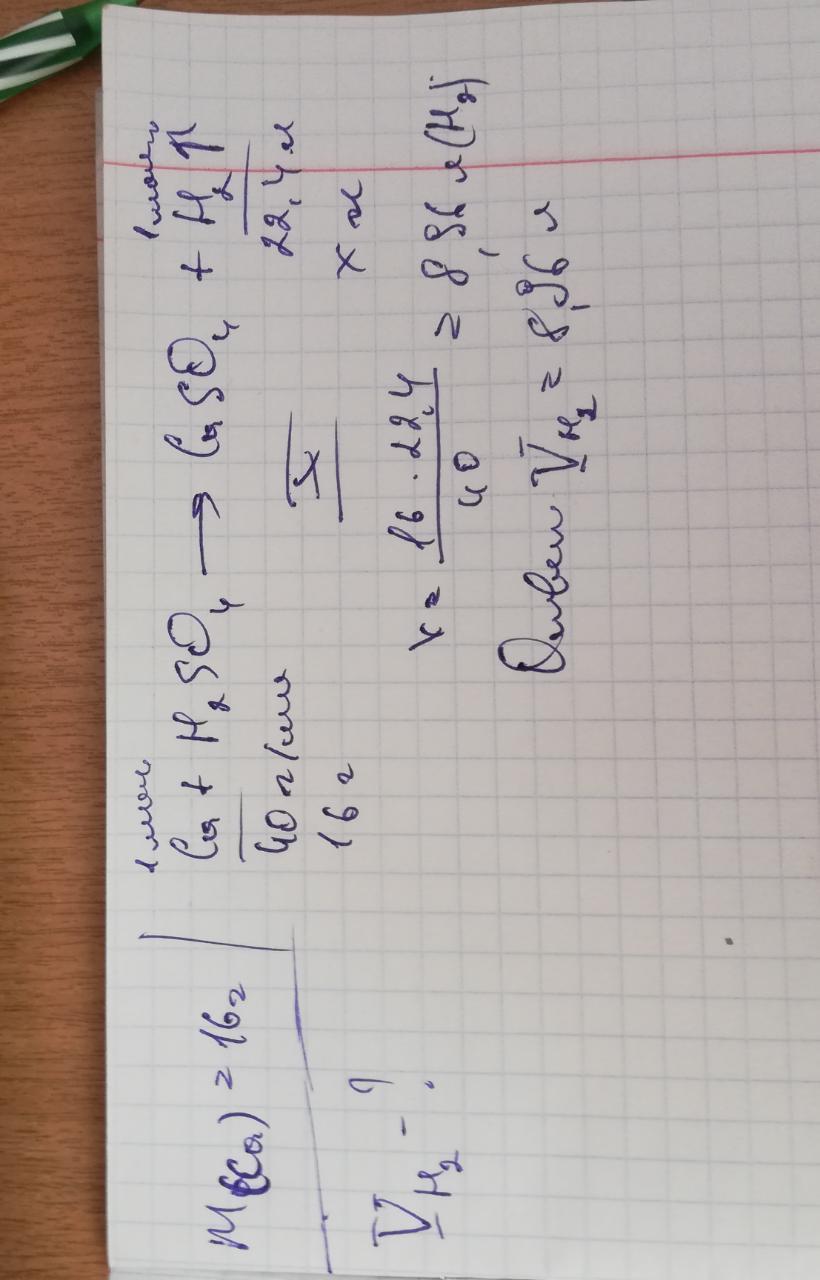 M(Ca) = 16г
V H₂ - ?
1 моль 1 моль
Ca + H₂SO₄ → CaSO₄ + H₂↑
40 г/моль 22,4 л
16 г X x л
x = 16 · 22,4 / 40 = 8,96 л (H₂)
Ответ V H₂ = 8,96 л